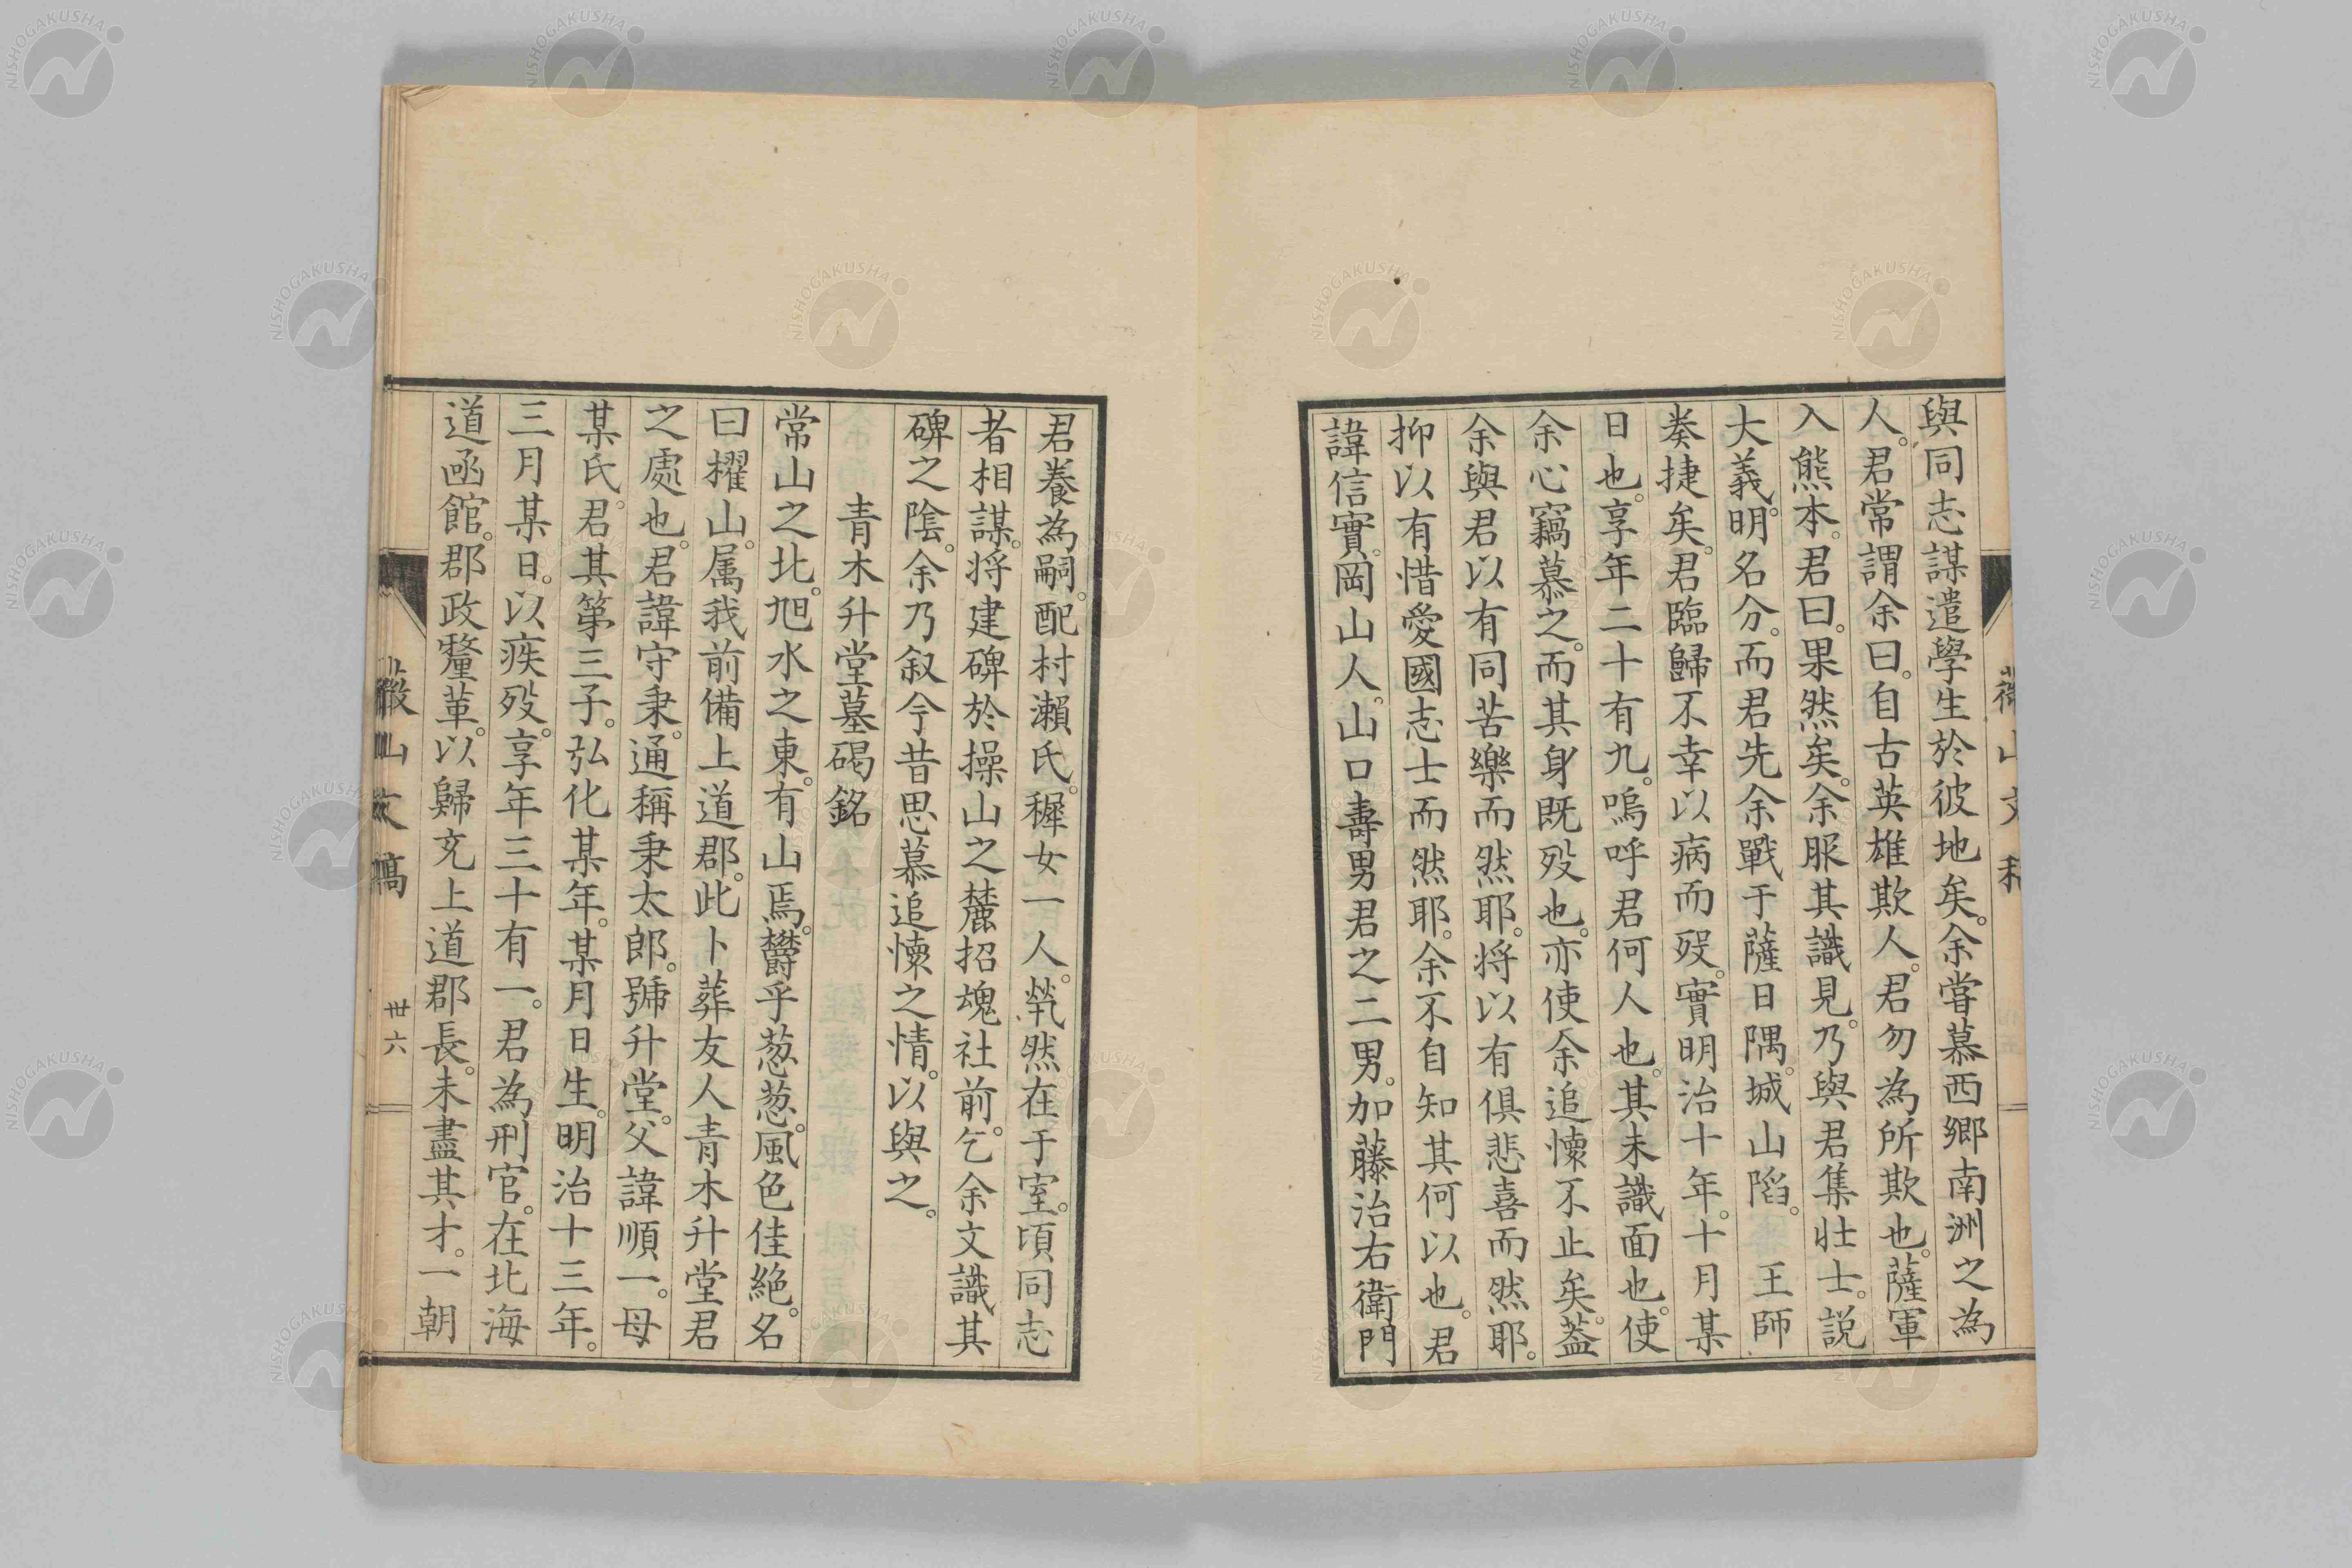 與同志謀遣學生於彼地矣。余嘗慕西郷南洲之為
人。君常謂余曰。自古英雄欺人。君勿為所欺也。薩軍
入熊本。君曰。果然矣。余服其識見。乃與君集壮士。説
大義。明名分。而君先余戰于薩日隅。城山陷。王師
奏捷矣。君臨歸不幸以病而歿。實明治十年。十月某
日也。享年二十有九。嗚呼君何人也。其未識面也。使
余心竊慕之。而其身既歿也。亦使余追懷不止矣。蓋
余與君以有同苦樂而然耶。将以有俱悲喜而然耶。
抑以有惜愛國志士而然耶。余不自知其何以也。君
諱信實。岡山人。山口壽男君之二男。加藤治右衛門
君養為嗣。配村瀬氏。穉女一人。煢然在于室。頃同志
者相謀。将建碑於操山之麓招魂社前。乞余文識其
碑之陰。余乃叙今昔思慕追懷之情。以與之。
青木升堂墓碣銘
常山之北。旭水之東。有山焉。欝乎葱葱。風色佳絶。名
曰櫂山。属我前備上道郡。此卜葬友人青木升堂君
之處也。君諱守秉。通稱秉太郎。號升堂。父諱順一。母
某氏。君其第三子。弘化某年。某月日生。明治十三年。
三月某日。以疾歿。享年三十有一。君為刑官。在北海
道函館。郡政釐革。以歸充上道郡長。未盡其才。一朝
薇山文稿
丗六
NISHOGAKUSHA